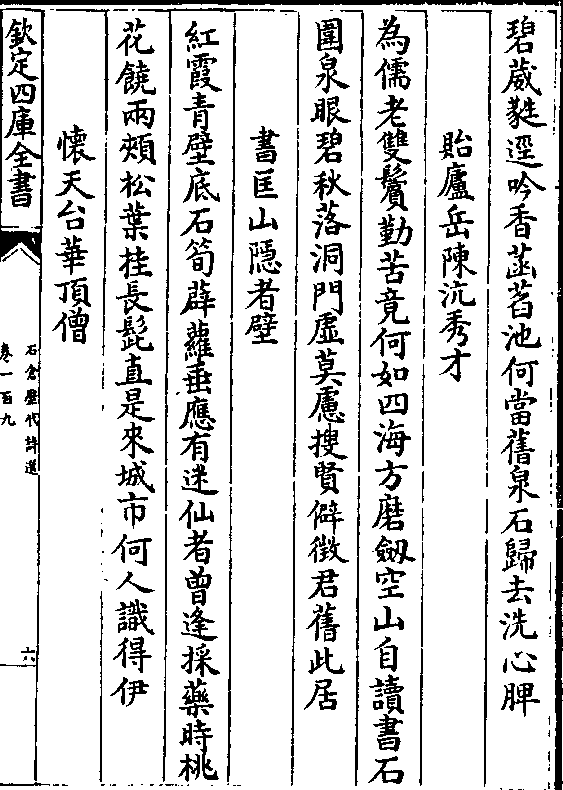 碧葳蕤逕吟香菡萏池何當舊泉石歸去洗心脾
貽廬岳陳沆秀才
為儒老雙鬢勤苦竟何如四海方磨劒空山自讀書石
圍泉眼碧秋落洞門虛莫慮搜賢僻徵君舊此居
書匡山隱者壁
紅霞青壁底石筍薜蘿垂應有迷仙者曾逢採藥時桃
花饒兩頰松葉挂長髭直是來城市何人識得伊
懷天台華頂僧
欽定四庫全書
石倉歷代詩選
卷一百九
六